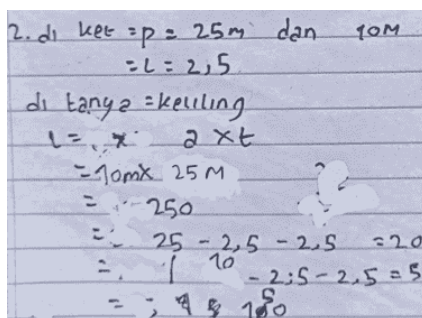 2. di ket = p = 25m dan 10M
= L = 2,5
di tanya = keliling
L = x a x t
= 10m x 25 M
= 250
= 25 - 2,5 - 2,5 = 20
= 10 - 2,5 - 2,5 = 5
=